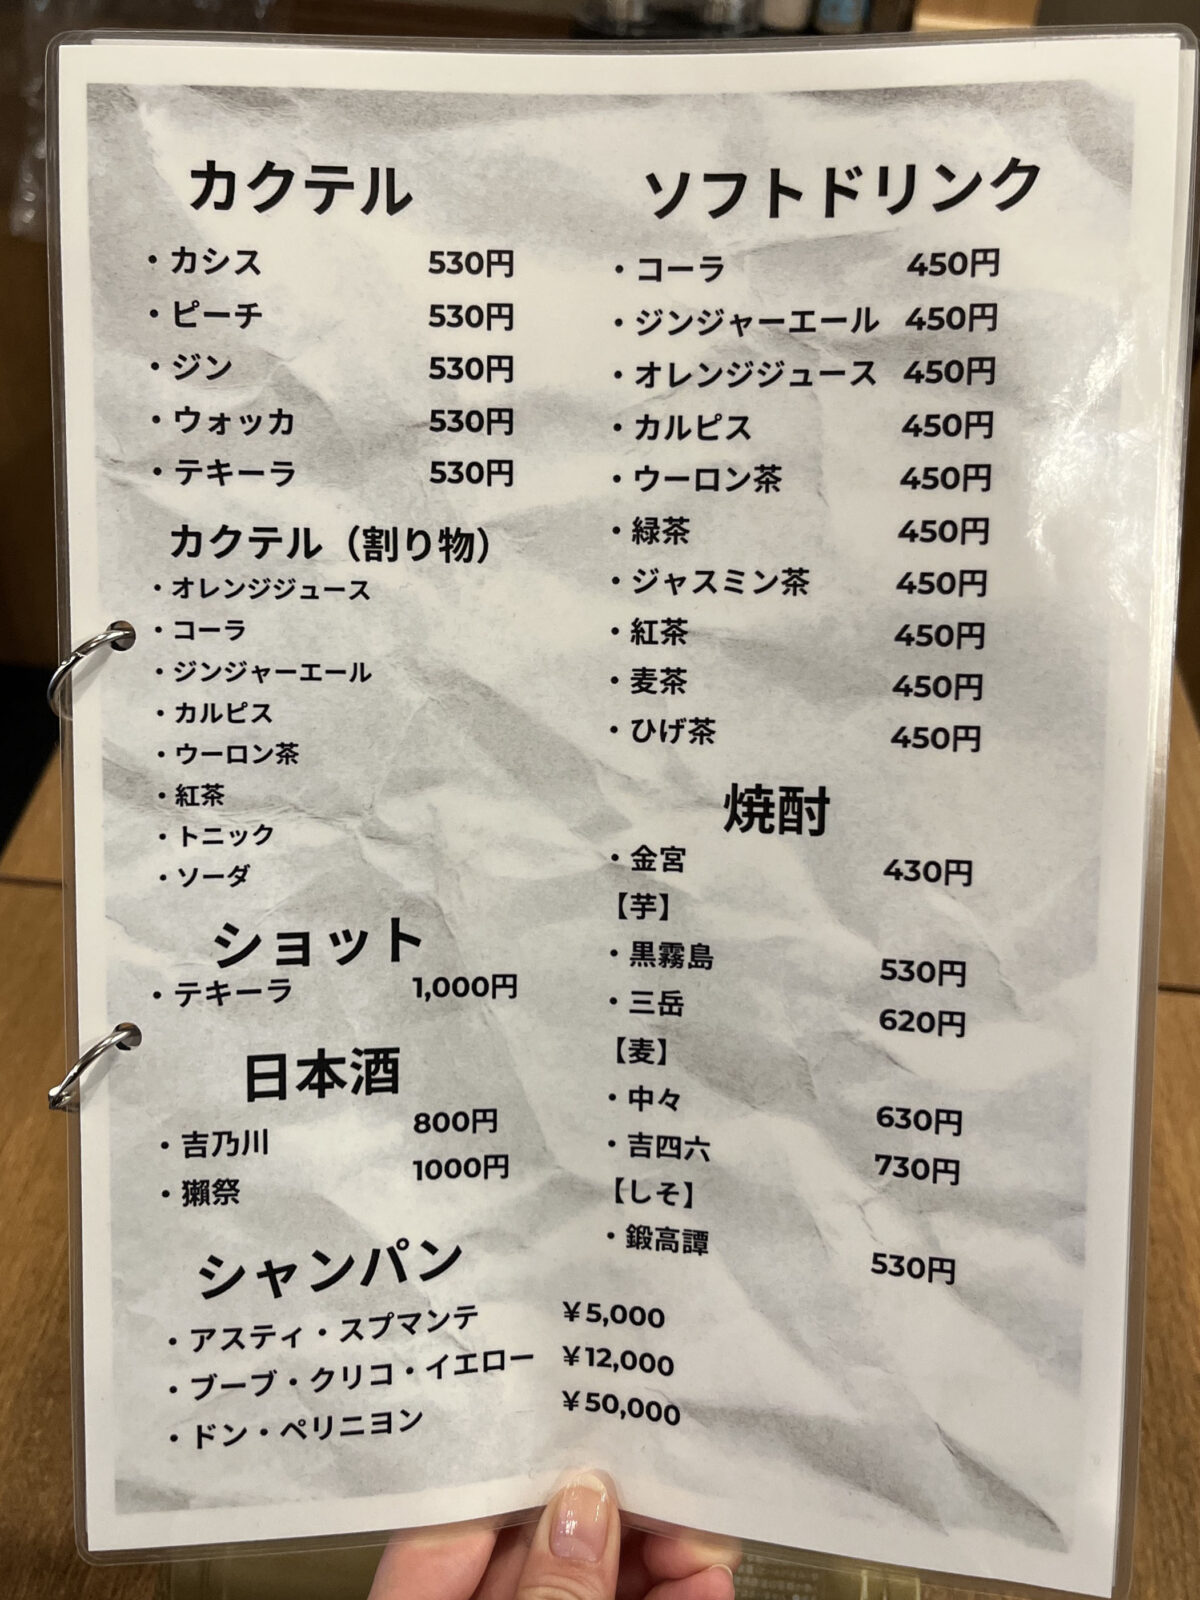 カクテル
・カシス 530円
・ピーチ 530円
・ジン 530円
・ウォッカ 530円
・テキーラ 530円
カクテル（割り物）
・オレンジジュース
・コーラ
・ジンジャーエール
・カルピス
・ウーロン茶
・紅茶
・トニック
・ソーダ
ショット
・テキーラ 1,000円
日本酒
・吉乃川 800円
・獺祭 1000円
シャンパン
・アスティ・スプマンテ ￥5,000
・ブーブ・クリコ・イエロー ￥12,000
・ドン・ペリニヨン ￥50,000
ソフトドリンク
・コーラ 450円
・ジンジャーエール 450円
・オレンジジュース 450円
・カルピス 450円
・ウーロン茶 450円
・緑茶 450円
・ジャスミン茶 450円
・紅茶 450円
・麦茶 450円
・ひげ茶 450円
焼酎
・金宮 430円
【芋】
・黒霧島 530円
・三岳 620円
【麦】
・中々 630円
・吉四六 730円
【しそ】
・鍛高譚 530円